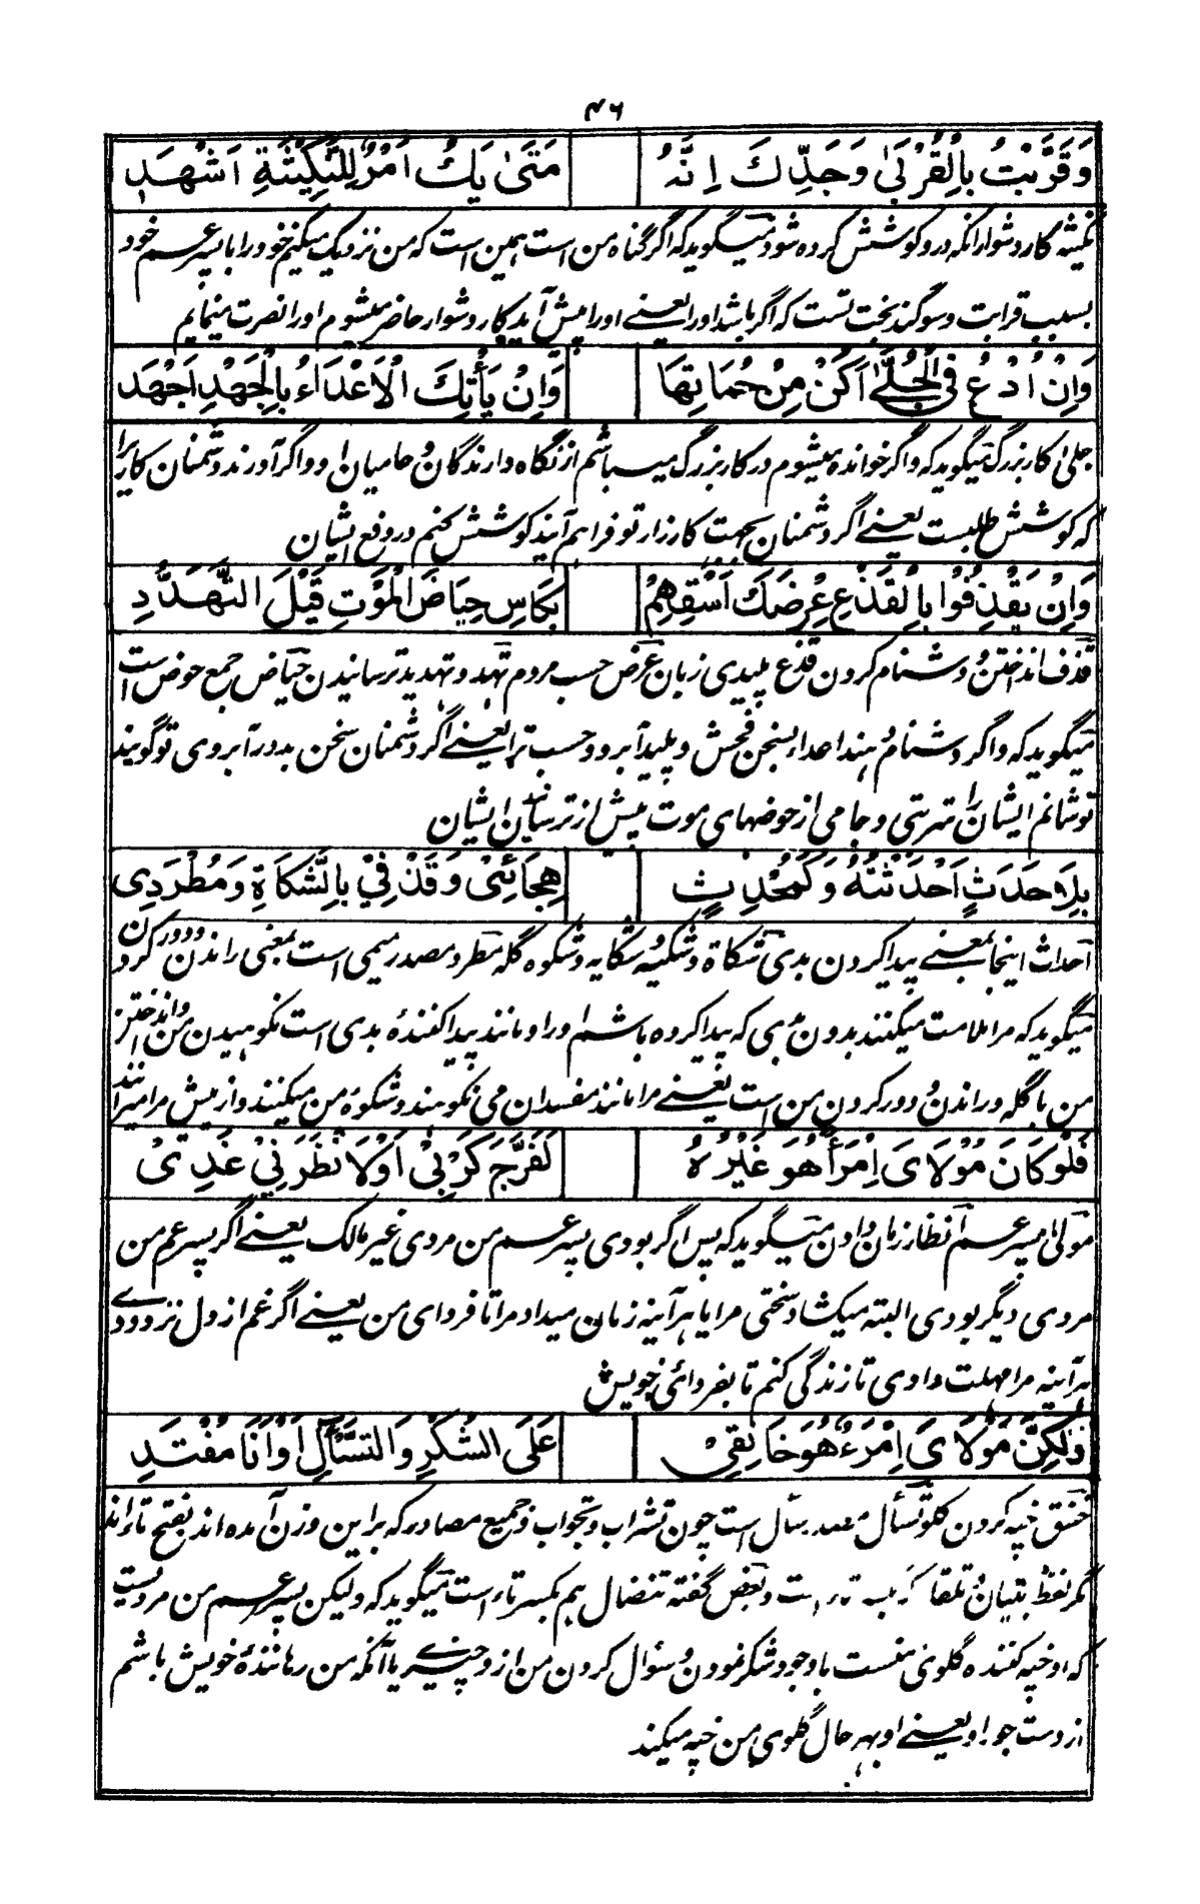 ۴۶
وَقَرَّبْتُ بِالْقُرْبَىٰ وَجَدِّكَ اِنَّهُ مَتَىٰ يَكُ اَمْرٌ لِلنَّكِيْثَةِ اَشْهَدِ
نکیثه کار دشوار انکه درو کوشش کرده شود میگوید که اگر گناه من است همین است که من نزدیک میکنم خود را با پسر عم خود
بسبب قرابت و سوگند بخت تست که اگر باشد او را یعنے او را پیش آید کار دشوار حاضر میشوم او را نصرت مینمایم
وَاِنْ اُدْعَ فِی الْجُلّٰی اَكُنْ مِنْ حُمَاتِهَا وَاِنْ يَأْتِكَ الْاَعْدَاءُ بِالْجَهْدِ اَجْهَدِ
جلی کار بزرگ میگوید که و اگر خوانده میشوم در کار بزرگ میباشم از نگاه دارندگان و حامیان او و اگر آورند دشمنان کاریرا
که کوشش طلبست یعنے اگر دشمنان بجهت کارزار تو فراهم آیند کوشش کنم در دفع ایشان
وَاِنْ يَقْذِفُوْا بِالْقَذْعِ عِرْضَكَ اَسْقِهِمْ بِكَاسِ حِيَاضِ الْمَوْتِ قَبْلَ التَّهَدُّدِ
قذف انداختن و دشنام کردن قذع پلیدی زبان عرض حسب مردم تهدد و تهدید ترسانیدن حیاض جمع حوض است
میگوید که و اگر دشنام دهند اعداء بسخن فحش و پلید آبرو و حسب ترا یعنے اگر دشمنان سخن بد در آبروی تو گویند
نوشانم ایشان را شربتی و جامی از حوضهای موت پیش از ترسانیدن ایشان
بِلَا حَدَثٍ اَحْدَثْتُهُ وَكَمُحْدِثٍ هِجَائِیْ وَقَذْفِیْ بِالشَّكَاةِ وَمُطْرَدِی
احداث اینجا بمعنے پیدا کردن بدی شکاة و شکیه شکایه و شکوه گله مطرد مصدر میمی است بمعنی راندن و دور کردن
میگوید که مرا ملامت میکنند بدون بدی که پیدا کرده باشم او را و مانند پیدا کنندهٔ بدی است نکوهیدن من و انداختن
من با گله و راندن و دور کردن من است یعنے مرا مانند مفسدان می نکوهند و شکوهٔ من میکنند و از پیش مرا میرانند
فَلَوْ كَانَ مَوْلَایَ اِمْرَأً هُوَ غَيْرُهُ لَفَرَّجَ كَرْبِیْ اَوْ لَاَنْظَرَنِیْ غَدِیْ
مولی پسر عم انظار زمان دادن میگوید که پس اگر بودی پسر عم من مردی غیر مالک یعنے اگر پسر عم من
مردی دیگر بودی البته میکشاد سختی مرا یا هر آینه زمان میداد مرا تا فردای من یعنے اگر غم از دل نزدودے
هر آینه مرا مهلت دادی تا زندگی کنم تا بفردائی خویش
وَلٰكِنَّ مَوْلَایَ اِمْرَءٌ هُوَ خَانِقِیْ عَلَی الشُّكْرِ وَالتَّسْأَلِ اَوْ اَنَا مُفْتَدِ
خنق خپه کردن گلو تسأل مصدر سأل است چون تشراب و تجواب و جمیع مصادر که براین وزن آمده اند بفتح تاءاند
مگر لفظ تبیان و تلقاء که بکسر تاء است و بعض گفته تنضال هم بکسر تاء است میگوید که ولیکن پسر عم من مردیست
که او خپه کننده گلوی منست باوجود شکر نمودن و سؤال کردن من ازو چیزے یا آنکه من رهانندهٔ خویش باشم
از دست جور او یعنے او بهر حال گلوی من خپه میکند